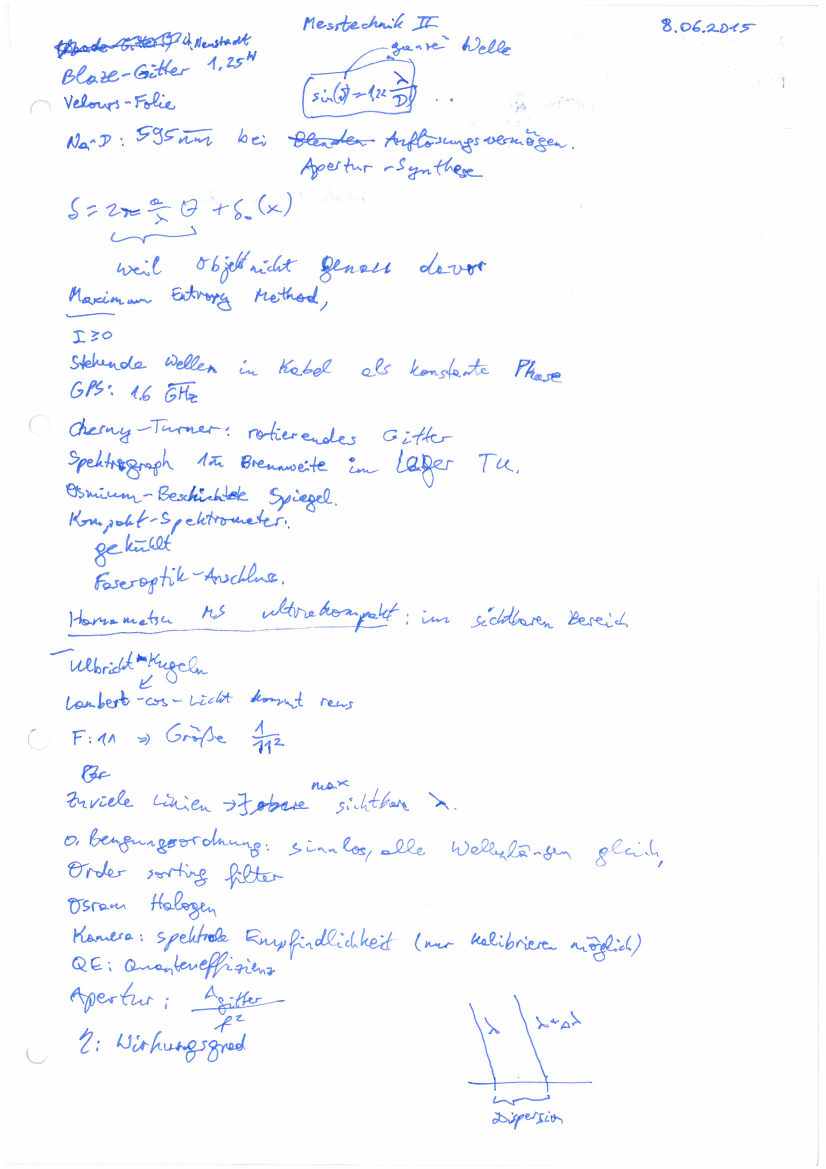 Messtechnik II
8.06.2015
Neustadt
Blaze-Gitter 1,25H
ganze Welle
sin(ϑ)=1,22 λ/D ..
Velours-Folie
Na-D: 595nm bei Blenden Auflösungsvermögen.
Apertur-Synthese
δ = 2π a/λ θ + δ₀(x)
weil Objekt nicht genau davor
Maximum Entropy Method,
I≥0
Stehende Wellen in Kabel als konstante Phase
GPS: 1.6 GHz
Cherny-Turner: rotierendes Gitter
Spektrograph 1m Brennweite im Lager TU.
Osmium-Beschichtete Spiegel.
Kompakt-Spektrometer:
gekühlt
Faseroptik-Anschluss.
Hamamatsu MS ultrakompakt: im sichtbaren Bereich
Ulbricht-Kugeln
Lambert-cos-Licht kommt raus
F:11 ⇒ Größe 1/11²
Zuviele Linien → obere max sichtbare λ.
0. Beugungsordnung: sinnlos, alle Wellenlängen gleich,
Order sorting filter
Osram Halogen
Kamera: spektrale Empfindlichkeit (nur kalibrieren möglich)
QE: Quanteneffizienz
Apertur: A_gitter/f²
η: Wirkungsgrad
λ λ+Δλ
Dispersion